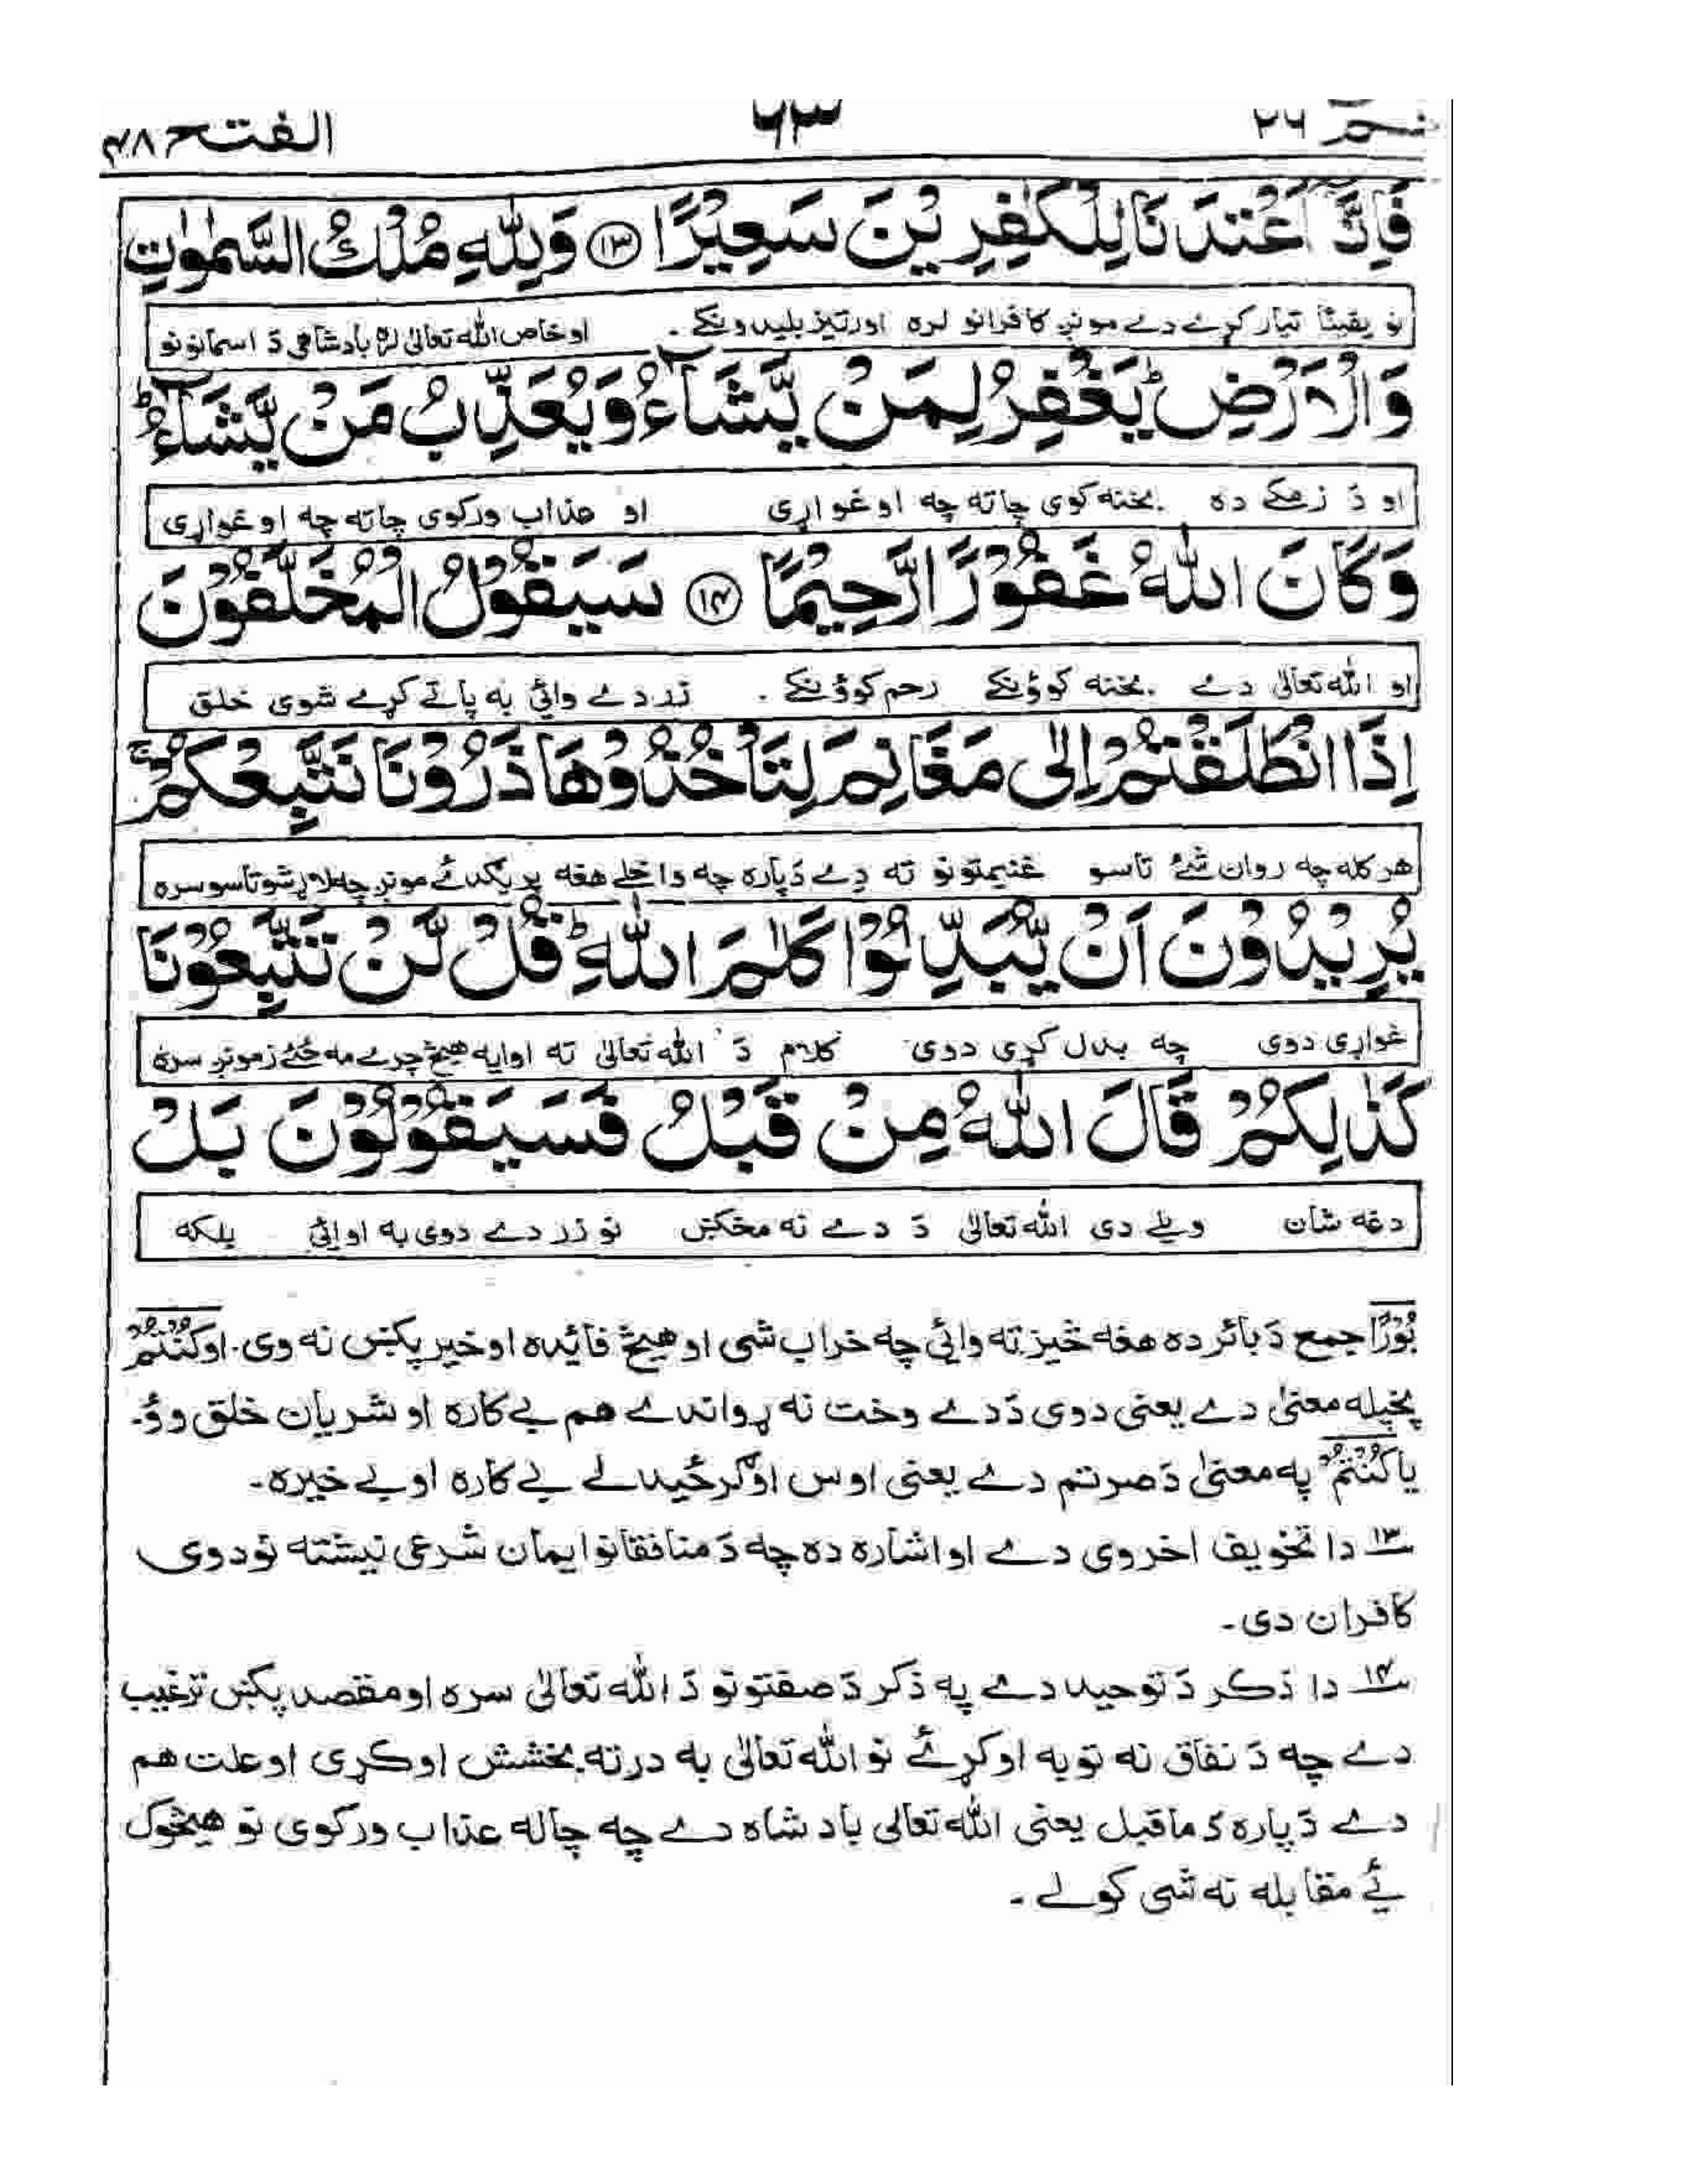 حٰم ۲۶ ۶۳ الفتح ۴۸
فَاِنَّا اَعْتَدْنَا لِلْكٰفِرِيْنَ سَعِيْرًا ⑬ وَلِلّٰهِ مُلْكُ السَّمٰوٰتِ
نو یقینًا تیار کړے دے مونږ کافرانو لره اور تیز بلیدونکے ۔ او خاص الله تعالیٰ لره بادشاهی دَ اسمانونو
وَالْاَرْضِ ؕ يَغْفِرُ لِمَنْ يَّشَآءُ وَيُعَذِّبُ مَنْ يَّشَآءُ ؕ
او دَ زمکے ده بخنه کوی چاته چه اوغواړی او عذاب ورکوی چاته چه اوغواړی
وَكَانَ اللّٰهُ غَفُوْرًا رَّحِيْمًا ⑭ سَيَقُوْلُ الْمُخَلَّفُوْنَ
او الله تعالیٰ دے بخنه کوؤنکے رحم کوؤنکے ۔ زر دے وائي به پاتے کړے شوی خلق
اِذَا انْطَلَقْتُمْ اِلٰى مَغَانِمَ لِتَاْخُذُوْهَا ذَرُوْنَا نَتَّبِعْكُمْ ۚ
هر کله چه روان شئے تاسو غنیمتونو ته دے دَپاره چه واخلے هغه پریګدئے مونږ چه لاړشو تاسو سره
يُرِيْدُوْنَ اَنْ يُّبَدِّلُوْا كَلٰمَ اللّٰهِ ؕ قُلْ لَّنْ تَتَّبِعُوْنَا
غواړی دوی چه بدل کړی دوی کلام دَ الله تعالیٰ ته اوایه هیڅ چرے مه ځئے زمونږ سره
كَذٰلِكُمْ قَالَ اللّٰهُ مِنْ قَبْلُ فَسَيَقُوْلُوْنَ بَلْ
دغه شان ویلے دی الله تعالیٰ دَ دے نه مخکښ نو زر دے دوی به اوائي بلکه
بُوْرًا جمع دَ بائر ده هغه څیز ته وائي چه خراب شی او هیڅ فائیده او خیر پکښ نه وی۔ او کُنْتُمْ
پخپله معنیٰ دے یعنی دوی دَ دے وخت نه ړواندے هم بے کاره او شریان خلق وؤ۔
یا کُنْتُمْ په معنیٰ دَ صرتم دے یعنی اوس اوګرځیدلے بے کاره او بے خیره۔
۱۳ دا تخویف اخروی دے او اشاره ده چه دَ منافقانو ایمان شرعی نیشته نو دوی
کافران دی۔
۱۴ دا ذکر دَ توحید دے په ذکر دَ صفتونو دَ الله تعالیٰ سره او مقصد پکښ ترغیب
دے چه دَ نفاق نه توبه اوکړئے نو الله تعالیٰ به درته بخشش اوکړی او علت هم
دے دَپاره دَ ماقبل یعنی الله تعالی بادشاه دے چه چاله عذاب ورکوی نو هیڅوک
ئے مقابله نه شی کولے ۔